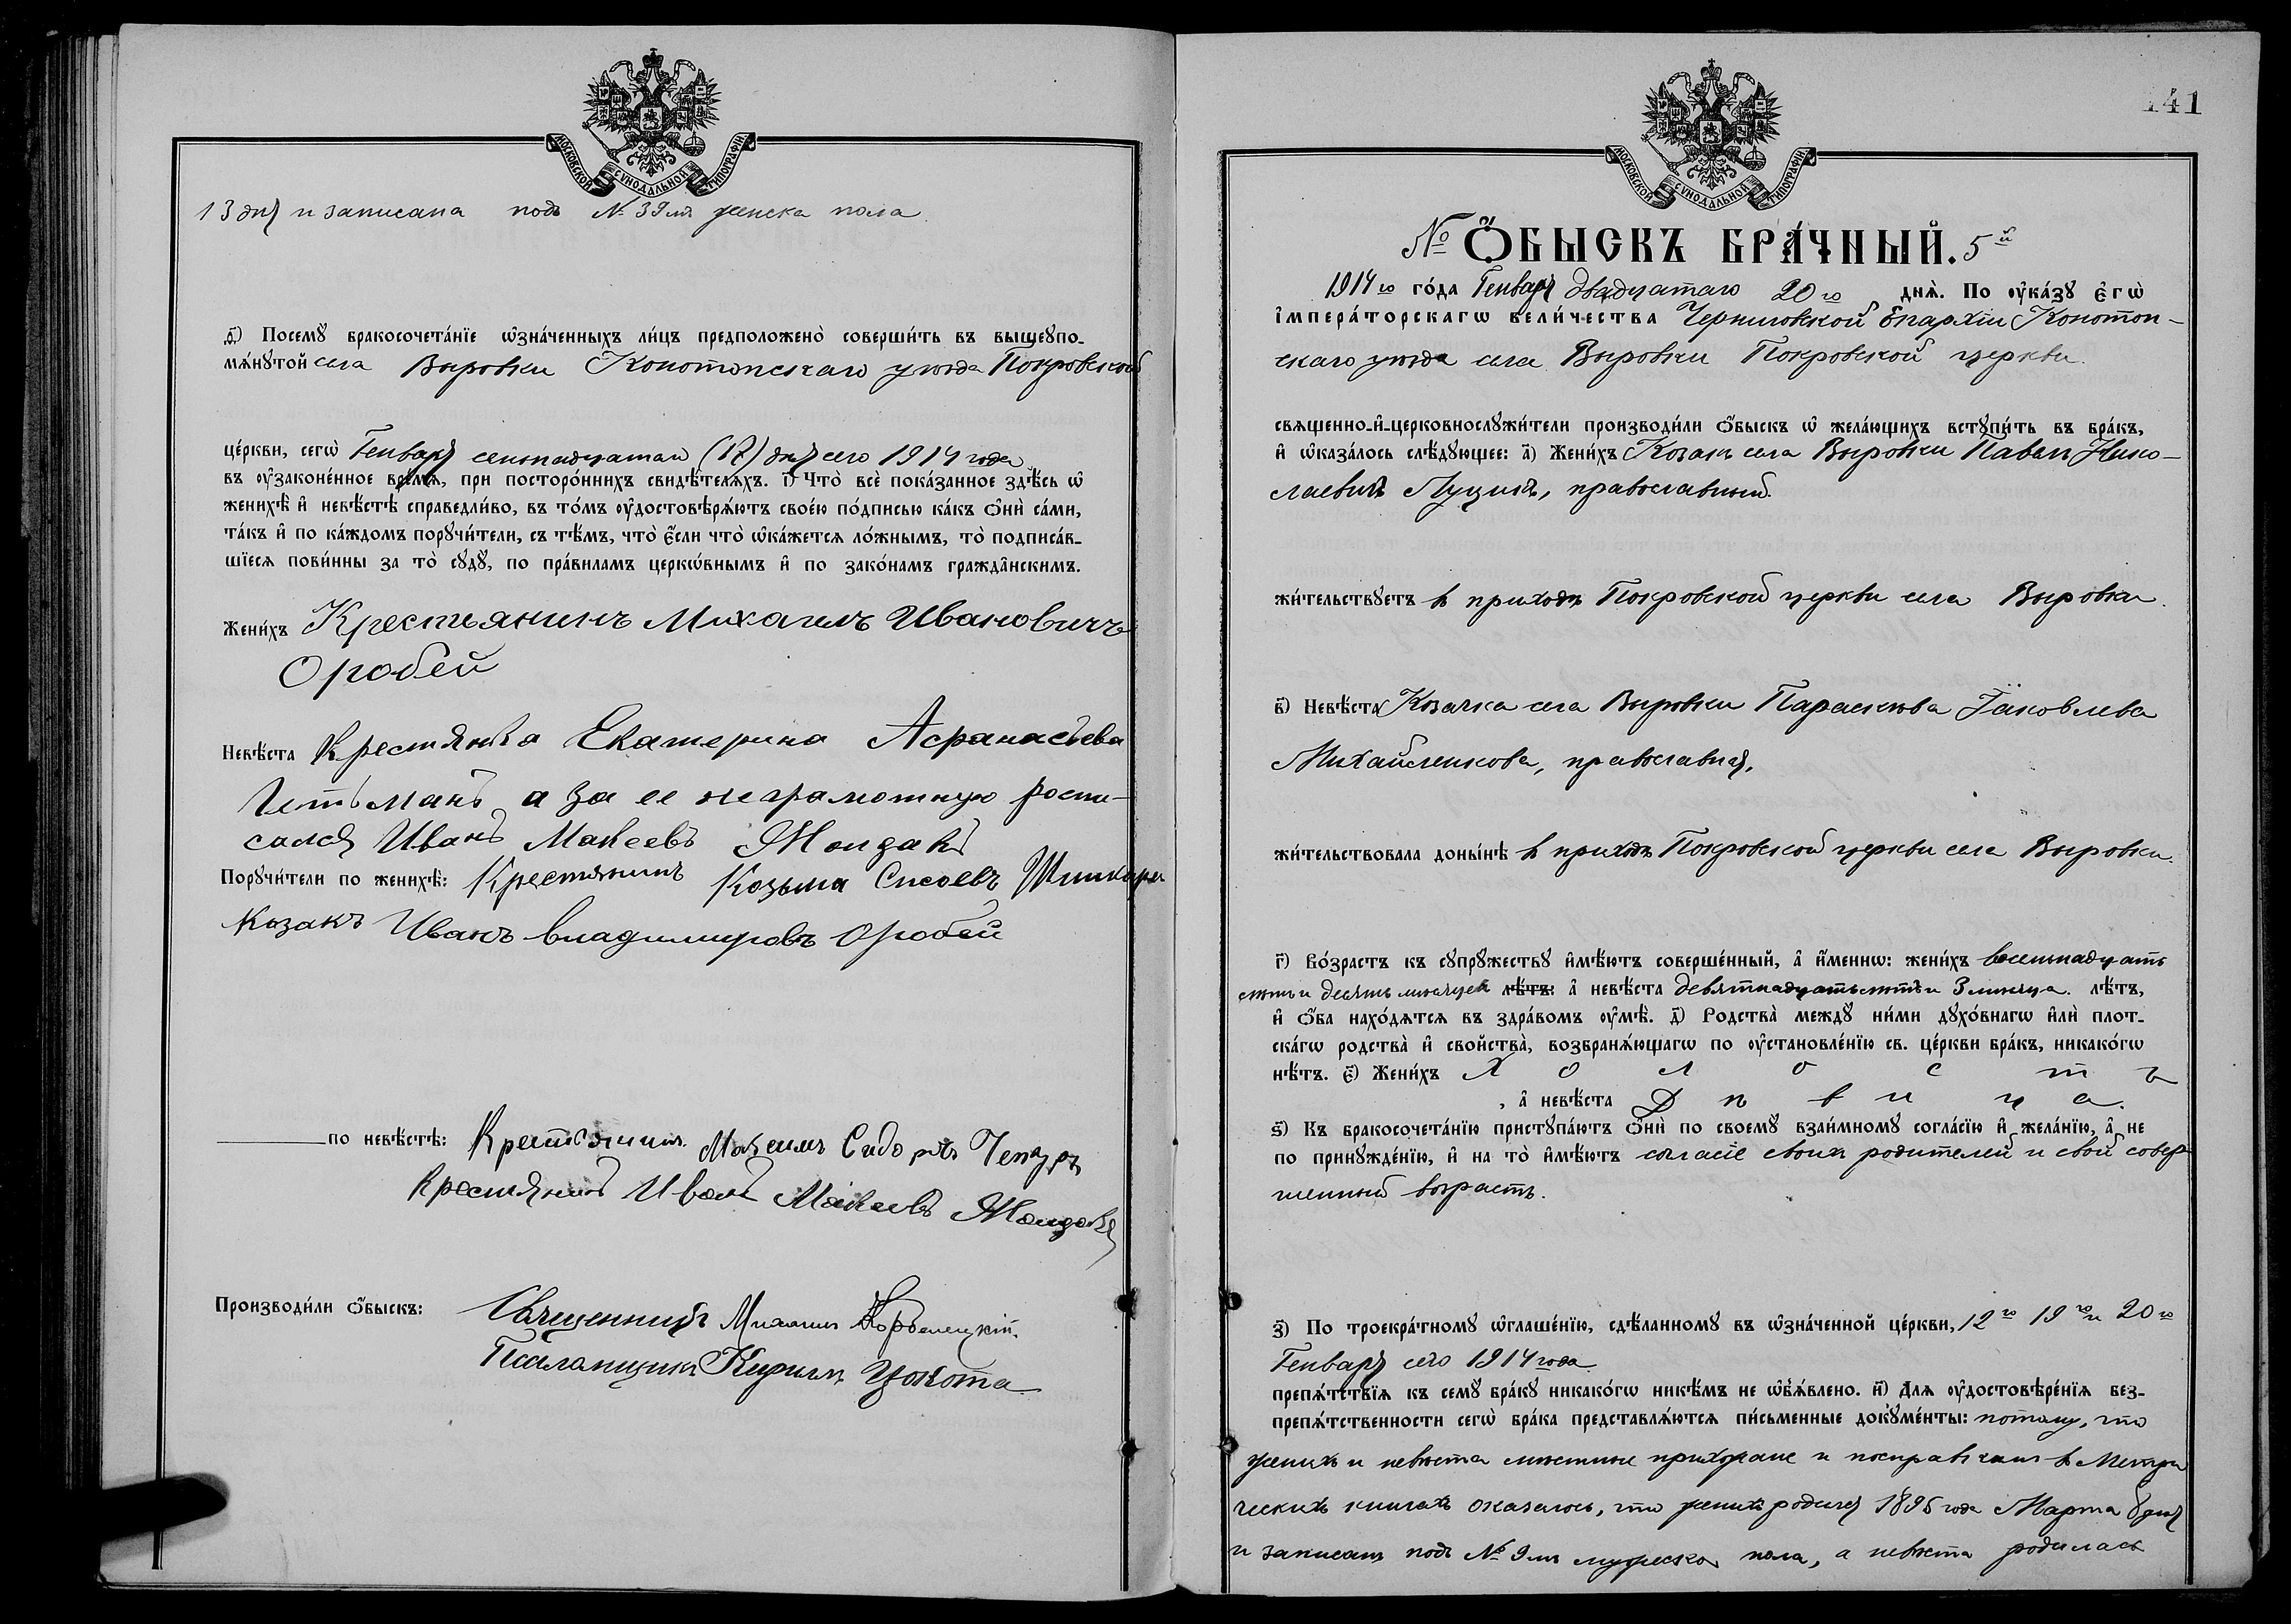 МОСКОВСКОЙ СѴНОДАЛЬНОЙ ТИПОГРАФІИ
13 дня и записана подъ № 39мъ женска пола.
д҃) Посемꙋ бракосочета́нїе ѡзна́ченныхъ ли́цъ предположено̀ соверши́ть въ вышеꙋпо-
мѧ́нꙋтой села Вировки Конотопскаго уѣзда Покровской
це́ркви, сегѡ̀ Генваря семнадцатаго (17) дня сего 1914 года
въ ᲂу҆зако́ненное вре́мѧ, при посторо́ннихъ свидѣ́телѧхъ. і҃) Что̀ всѐ пока́занное здѣ́сь ѡ
женихѣ̀ и҆ невѣ́стѣ справедли́во, въ то́мъ ᲂу҆достовѣрѧ́ютъ свое́ю по́дписью ка́къ ѻ҆нѝ са́ми,
та́къ и҆ по ка́ждомъ порꙋчи́тели, съ тѣ́мъ, что̀ є҆́сли что̀ ѡ҆ка́жетсѧ ло́жнымъ, то̀ подписа́в-
шїесѧ пови́нны за то̀ сꙋдꙋ̀, по пра́виламъ церкѡ́внымъ и҆ по зако́намъ гражда̂нскимъ.
Жени́хъ Крестьянинъ Михаилъ Ивановичъ
Оробей
Невѣ́ста Крестянка Екатерина Афанасьева
Гетьманъ а за ее неграмотную роспи-
сался Иванъ Макеевъ
Порꙋчи́тели по женихѣ̀: Крестянинъ Козьма Сисоевъ
Казакъ Иванъ Владимировъ Оробей
по невѣ́стѣ: Крестьянинъ Максимъ Сидоровъ
Крестянинъ Иванъ Макеевъ
Производи́ли ѻ҆́быскъ: Священникъ Михаилъ Корбелецкій.
Псаломщикъ Кириллъ Цокота
141
МОСКОВСКОЙ СѴНОДАЛЬНОЙ ТИПОГРАФІИ
№ Ѻ҆́БЫСКЪ БРА́ЧНЫЙ. 5й
1914го го́да Генваря двадцатаго 20го днѧ̀. По ᲂу҆ка́зꙋ є҆гѡ̀
і҆мпера́торскагѡ вели́чества Черниговской Епархіи Конотоп-
скаго уѣзда села Вировки Покровской церкви
свѧщенно-и҆-церковнослꙋжи́тели производи́ли ѻ҆́быскъ ѡ҆ жела́ющихъ встꙋпи́ть въ бра́къ,
и҆ ѡ҆каза́лось слѣ́дꙋющее: а҃) Жени́хъ Козакъ села Вировки Павелъ Нико-
лаевичъ Луцикъ, православный.
жи́тельствꙋетъ въ приходѣ Покровской церкви села Вировки.
в҃) Невѣ́ста Козачка села Вировки Параскева Іаковлева
Михайленкова, православная,
жи́тельствовала доны́нѣ въ приходѣ Покровской церкви села Вировки.
г҃) Во́зрастъ къ сꙋпрꙋ́жествꙋ и҆мѣ́ютъ соверше́нный, а҆ и҆́меннѡ: жени́хъ восемнадцать
лѣтъ и десять мѣсяцей лѣ́тъ: а҆ невѣ́ста девятнадцать лѣтъ и 3 мѣсяца. лѣ́тъ,
и҆ ѻ҆́ба нахо́дѧтсѧ въ здра́вомъ ᲂу҆мѣ̀. д҃) Родства̀ междꙋ̀ ни́ми дꙋхо́внагѡ и҆лѝ плот-
ска́гѡ родства̀ и҆ свойства̀, возбранѧ́ющагѡ по ᲂу҆становле́нїю св. це́ркви бра́къ, никако́гѡ
нѣ́тъ. є҃) Жени́хъ Х о л о с т ъ
, а҆ невѣ́ста Д ѣ в и ц а.
ѕ҃) Къ бракосочета́нїю пристꙋпа́ютъ ѻ҆нѝ по своемꙋ̀ взаи́мномꙋ согла́сїю и҆ жела́нїю, а҆ не
по принꙋжде́нїю, и҆ на то̀ и҆мѣ́ютъ согласіе своихъ родителей и свой совер-
шенный возрастъ.
з҃) По троекра́тномꙋ ѡ҆глаше́нїю, сдѣ́ланномꙋ въ ѡ҆зна́ченной це́ркви, 12го 19го и 20го
Генваря сего 1914 года.
препѧ́тствїѧ къ семꙋ̀ бра́кꙋ никако́гѡ никѣ́мъ не ѡ҆б̾ѧ́влено. и҃) Длѧ ᲂу҆достовѣре́нїѧ без-
препѧ́тственности сегѡ̀ бра́ка представлѧ́ютсѧ пи́сьменные докꙋме́нты: потому, что
женихъ и невѣста мѣстные прихожане и по справкамъ въ Метри
ческихъ книгахъ оказалось, что женихъ родился 1895 года Марта дня
и записанъ подъ № 9мъ мужеска пола, а невѣста родилась